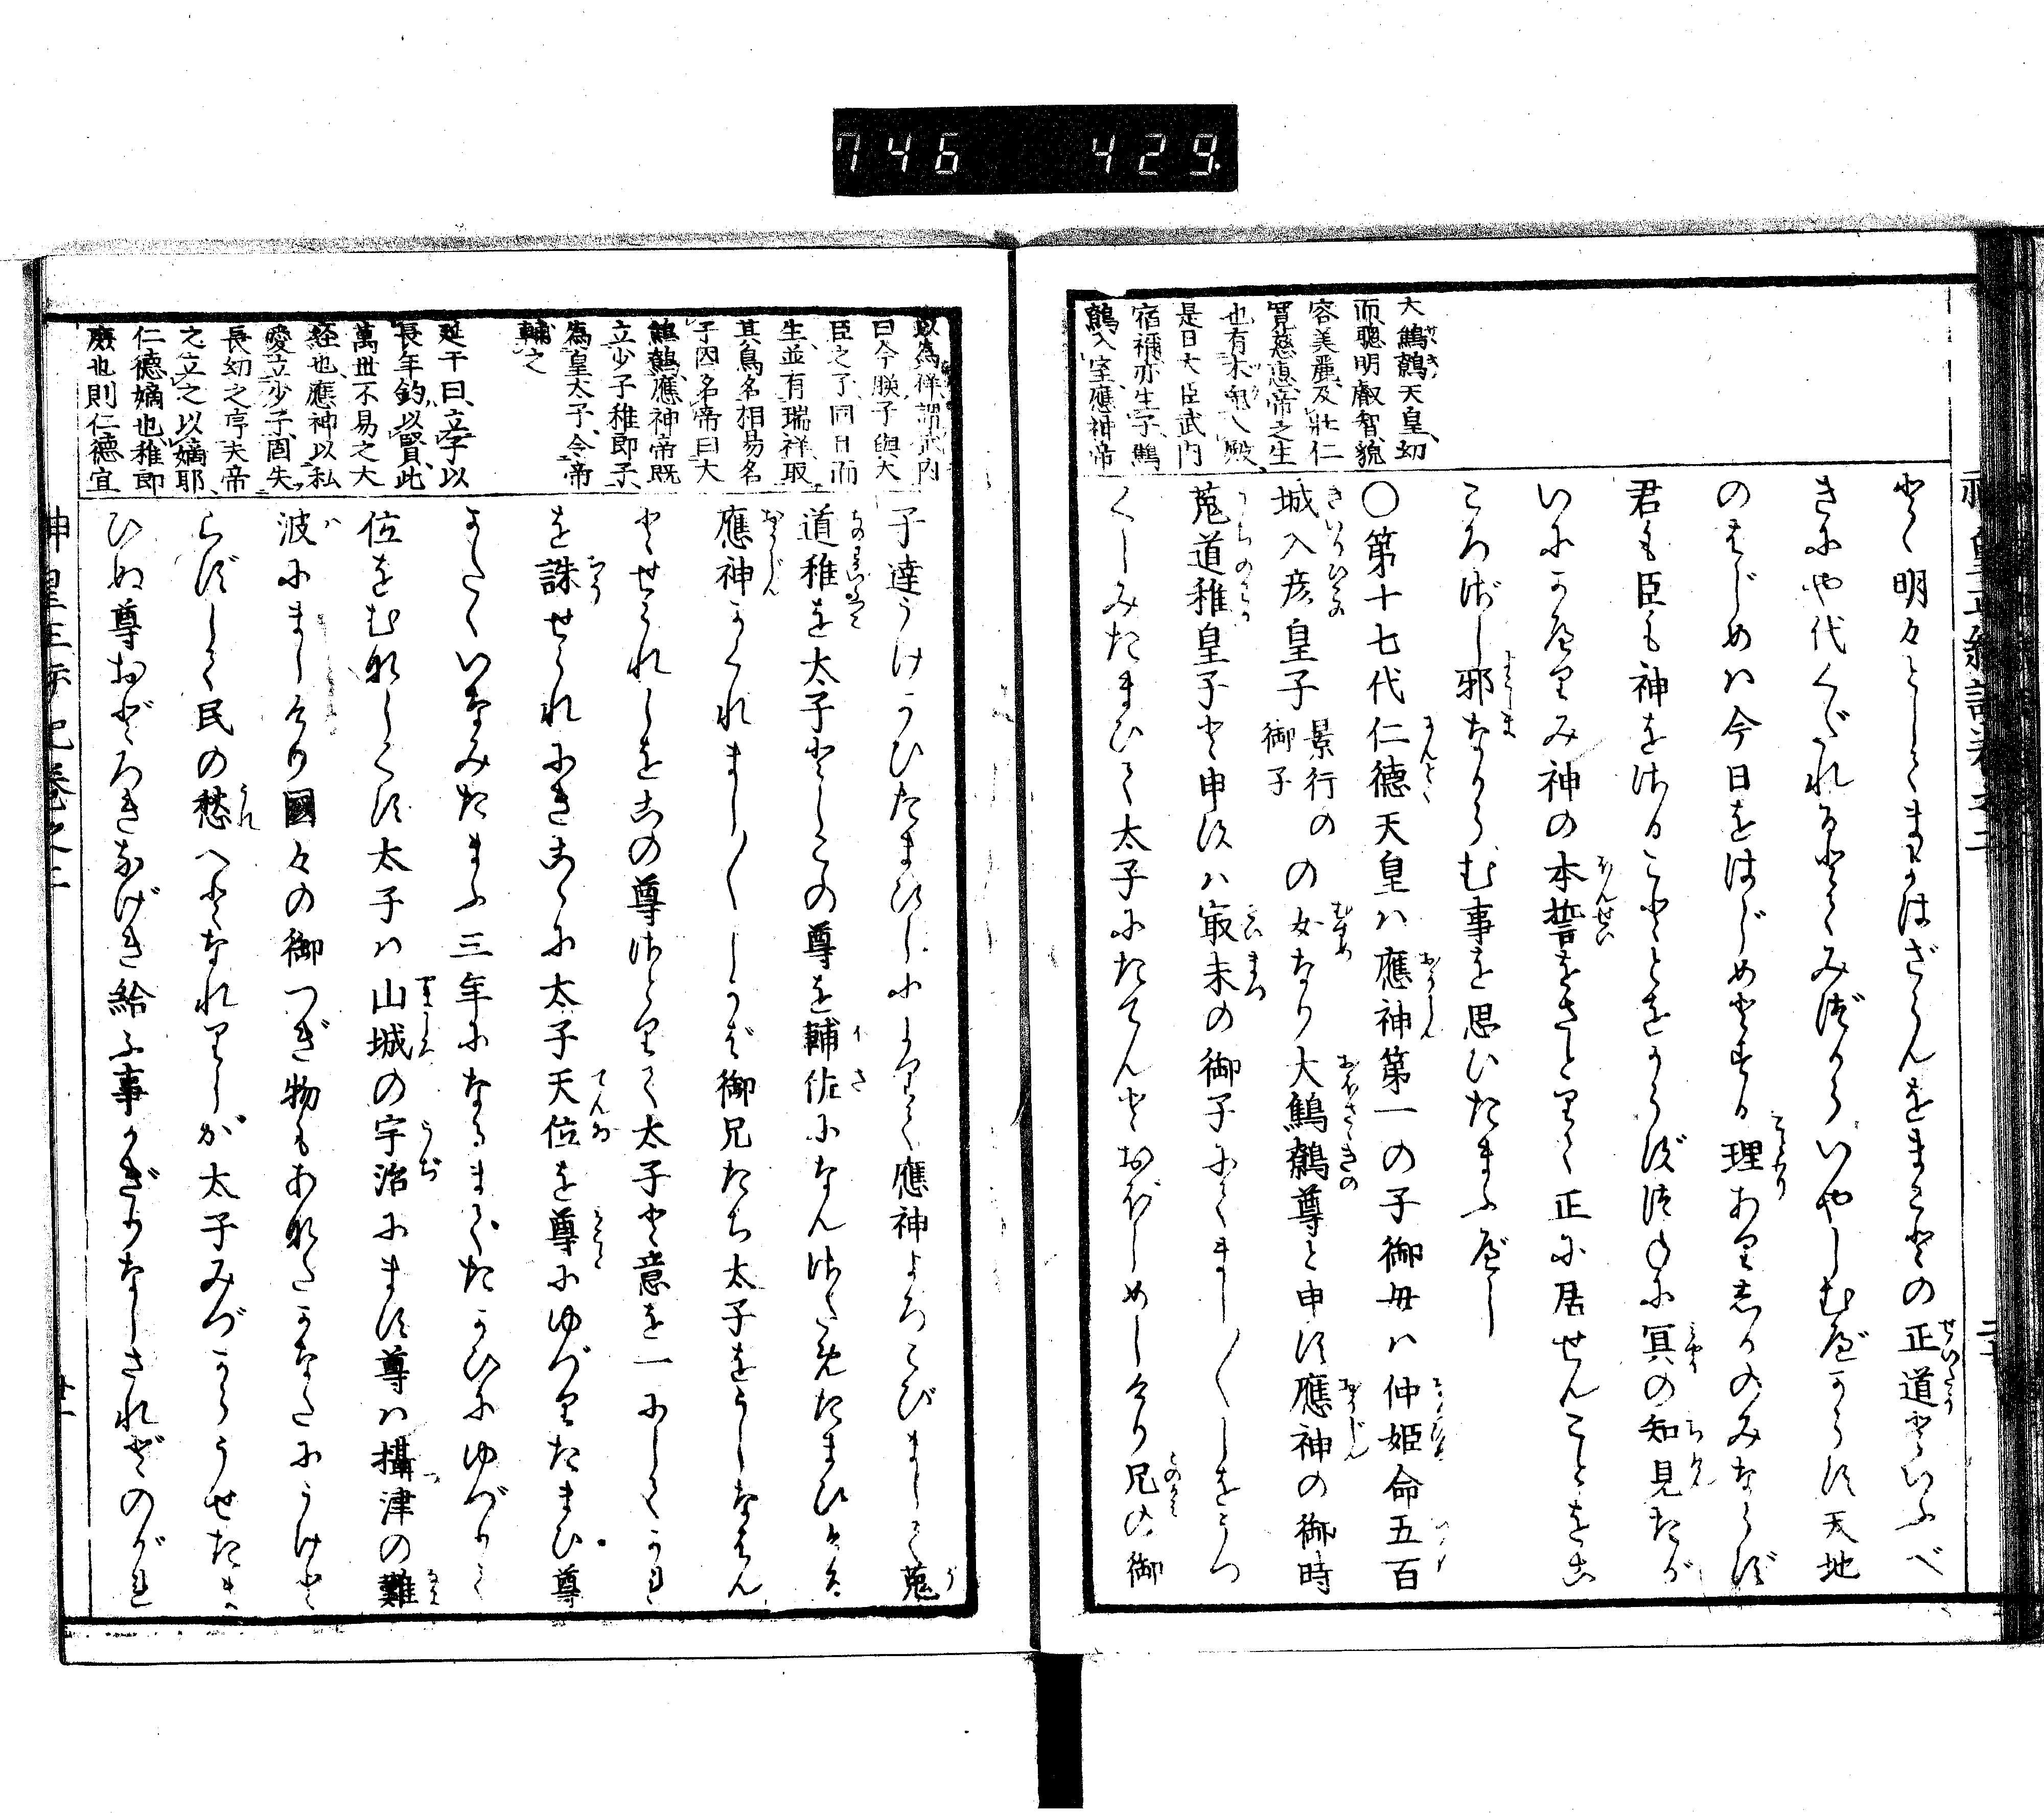 746 429
大鷦鷯天皇幼
而聰明叡智貌
容美麗及壯仁
寛慈惠帝之生
也有木兎入殿
是日大臣武内
宿禰亦生子鷦
鷯入室應神帝
として明々としてまよはざらんをまことの正道といふべ
きにや代くだれるとてみづからいやしむべからず天地
のはじめハ今日をはじめとする理ありしかのみならず
君も臣も神をさることとをからずつねに冥の知見たが
いにかへりみ神の本誓をさとりて正に居せんことをこ
ころざし邪なからむ事を思ひたまふべし
〇第十七代仁德天皇ハ應神第一の子御母ハ仲姫命五百
城入彦皇子景行の御子の女なり大鷦鷯尊と申す應神の御時
菟道稚皇子と申すハ最末の御子にてまし〱しをうつ
くしみたまひて太子にたてんとおぼしめしけり兄の御
以為祥謂武内
曰今朕子與大
臣之子同日而
生並有瑞祥取
其鳥名相易名
子因名帝曰大
鷦鷯應神帝既
立少子稚郎子
為皇太子令帝
輔之
延于曰立子以
長年鈞以賢此
萬世不易之大
経也應神以私
愛立少子固失
長幼之序夫帝
之立之以嫡耶
仁德嫡也稚郎
庶也則仁德宜
子達うけかひたまはざりしによりて應神よろこびまして菟
道稚を太子としこの尊を輔佐になんさだめたまひける
應神かくれまし〱しかば御兄たち太子をうしなはん
とせられしをこの尊さとりて太子と意を一にしてかれ
を誅せられにきこゝに太子天位を尊にゆづりたまひ尊
かたくいなみたまふ三年になるまでたがひにゆづりて
位をむなしくす太子ハ山城の宇治にます尊ハ攝津の難
波にましけり國々の御つぎ物もあなたかなたにうけと
らずして民の愁へとなれりしが太子みづからうせたま
ひぬ尊おどろきなげき給ふ事かぎりなしされどのがれ
神皇正統記巻之二